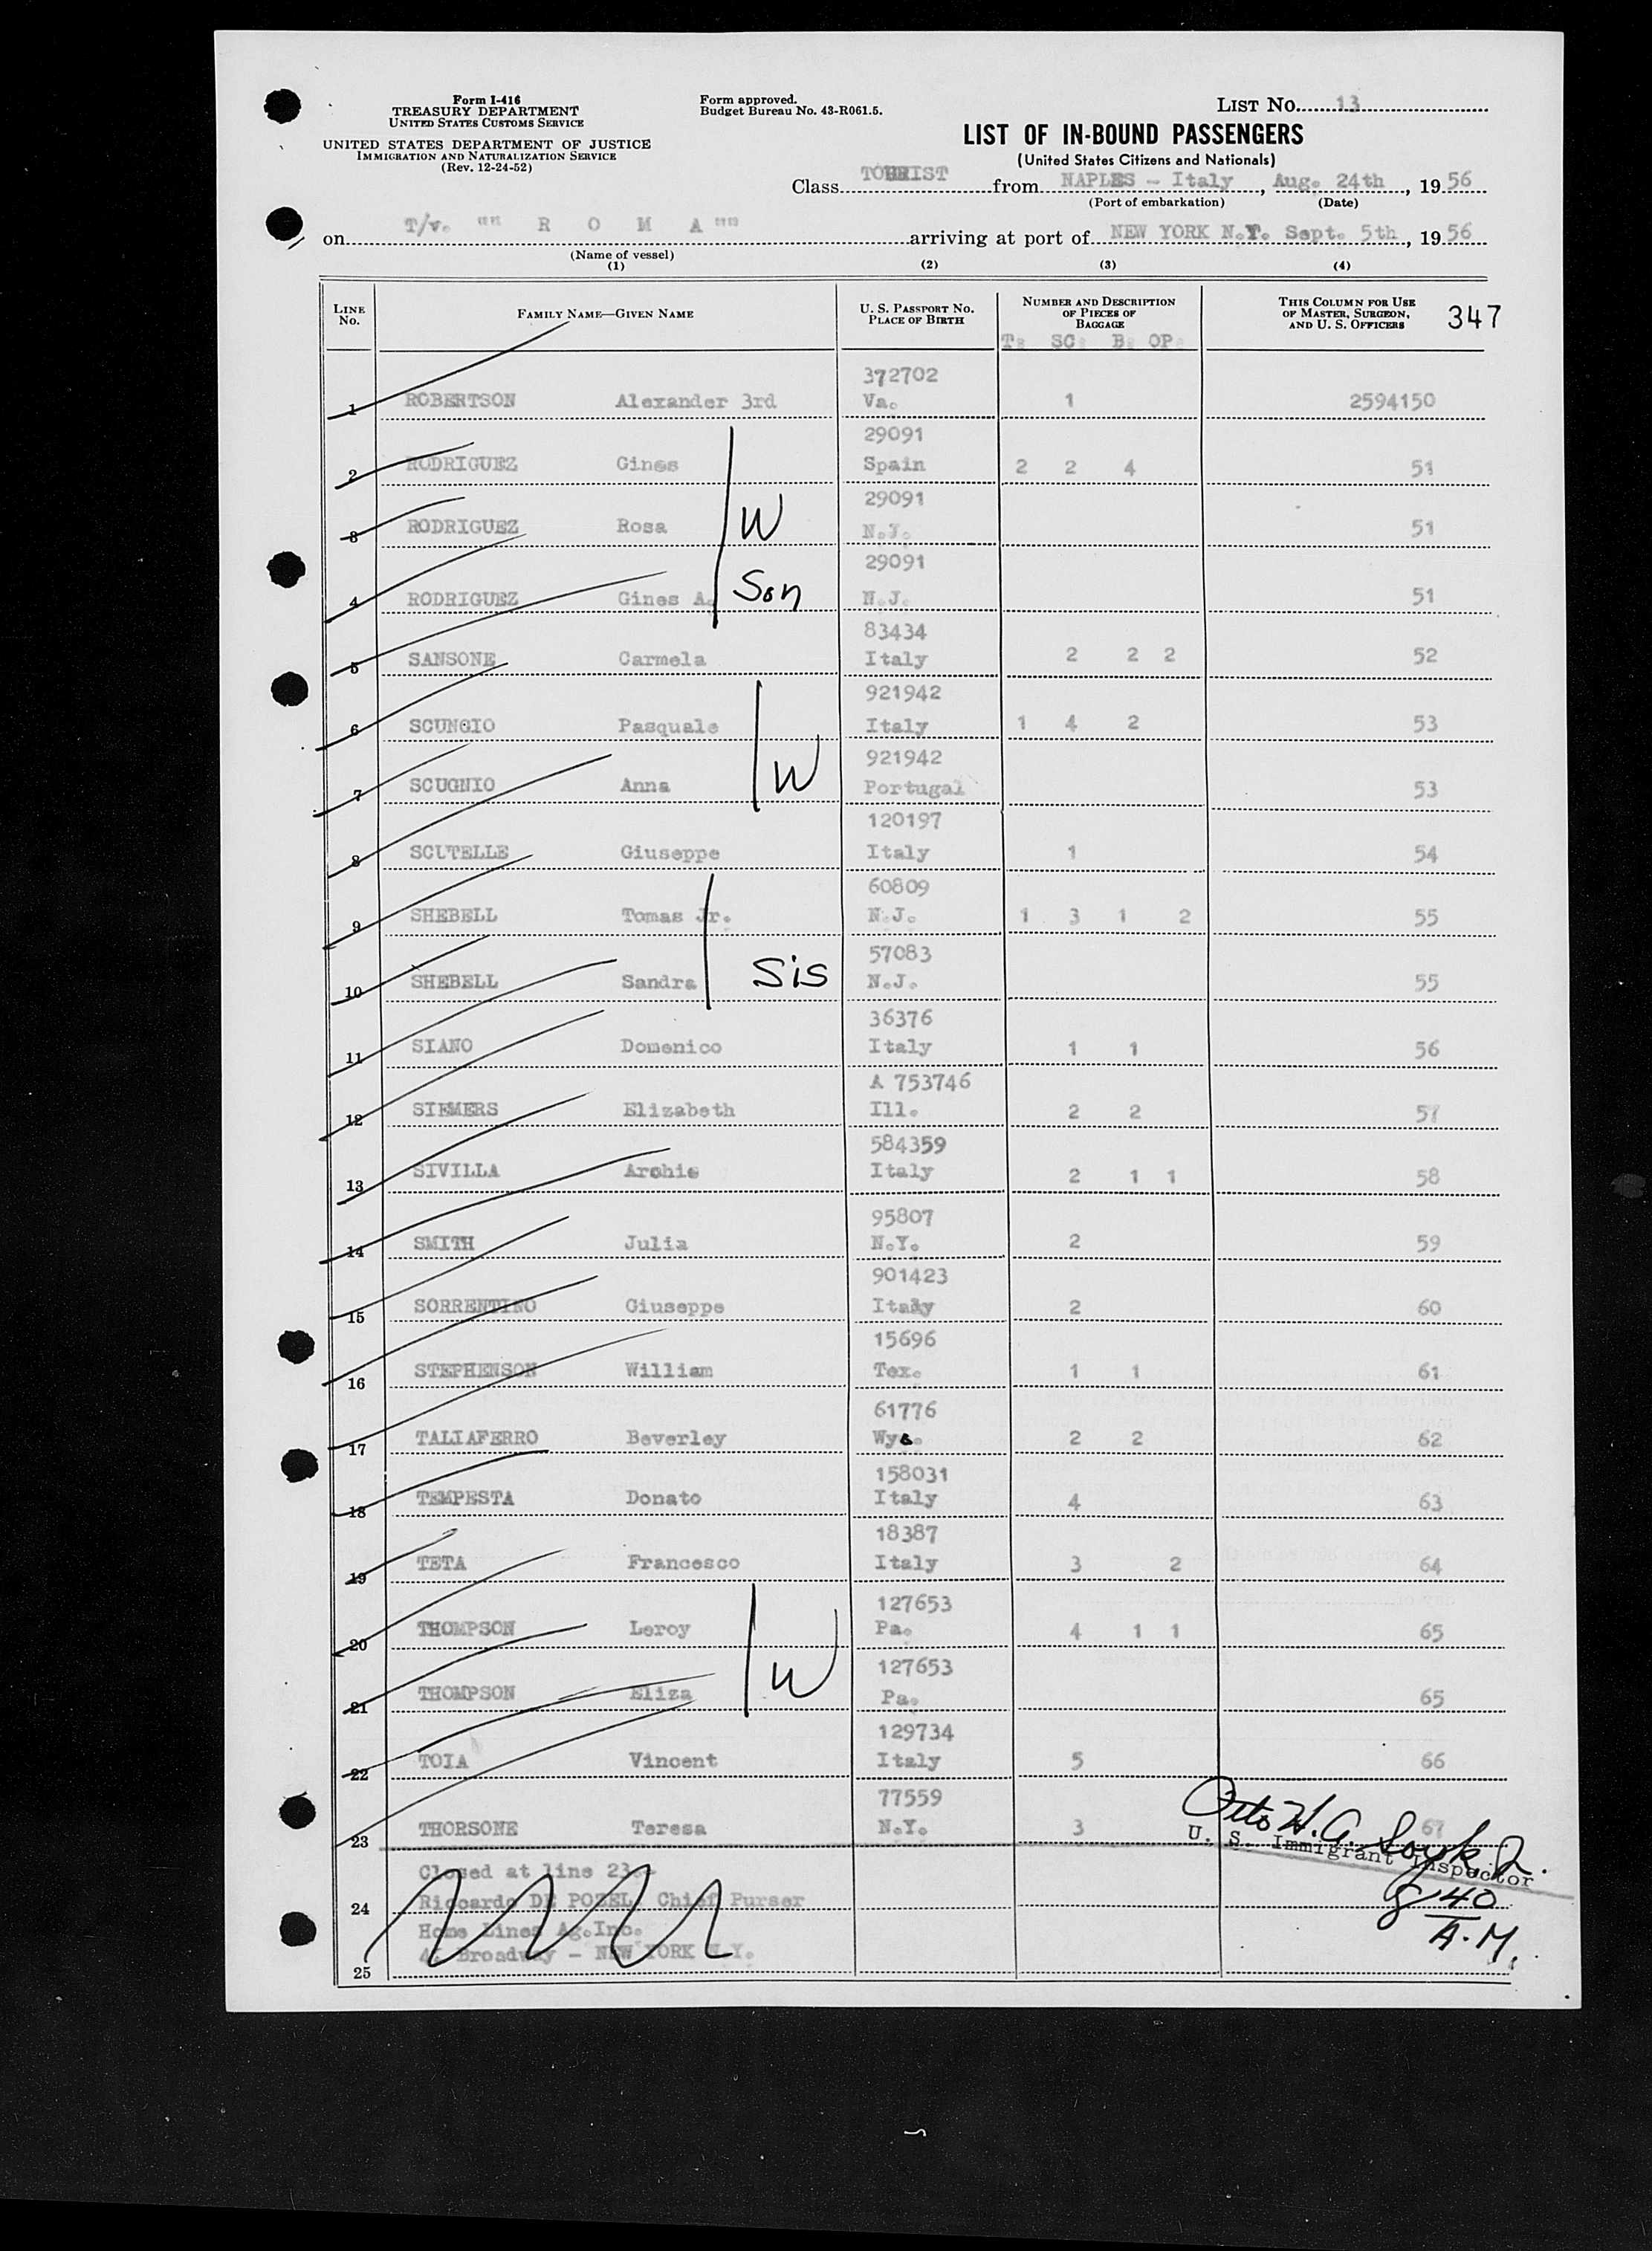 Form I-416
TREASURY DEPARTMENT
UNITED STATES CUSTOMS SERVICE
UNITED STATES DEPARTMENT OF JUSTICE
IMMIGRATION AND NATURALIZATION SERVICE
(Rev. 12-24-52)
Form approved.
Budget Bureau No. 43-R061.5.
LIST NO. 13
LIST OF IN-BOUND PASSENGERS
(United States Citizens and Nationals)
Class TOURIST from NAPLES - Italy, Aug. 24th, 1956
(Port of embarkation) (Date)
on T/v. "" R O M A "" arriving at port of NEW YORK N.Y. Sept. 5th, 1956
(Name of vessel)
(1) (2) (3) (4)
LINE No. FAMILY NAME—GIVEN NAME U. S. PASSPORT NO. PLACE OF BIRTH NUMBER AND DESCRIPTION OF PIECES OF BAGGAGE THIS COLUMN FOR USE OF MASTER, SURGEON, AND U. S. OFFICERS 347
T: SC: B: OP:
372702
1 ROBERTSON Alexander 3rd Va. 1 2594150
29091
2 RODRIGUEZ Gines Spain 2 2 4 51
29091
3 RODRIGUEZ Rosa W N.Y. 51
29091
4 RODRIGUEZ Gines A. Son N.J. 51
83434
5 SANSONE Carmela Italy 2 2 2 52
921942
6 SCUNGIO Pasquale Italy 1 4 2 53
921942
7 SCUGNIO Anna W Portugal 53
120197
8 SCUTELLE Giuseppe Italy 1 54
60809
9 SHEBELL Tomas Jr. N.J. 1 3 1 2 55
57083
10 SHEBELL Sandra Sis N.J. 55
36376
11 SIANO Domenico Italy 1 1 56
A 753746
12 SIEMERS Elizabeth Ill. 2 2 57
584359
13 SIVILLA Archie Italy 2 1 1 58
95807
14 SMITH Julia N.Y. 2 59
901423
15 SORRENTINO Giuseppe Italy 2 60
15696
16 STEPHENSON William Tex. 1 1 61
61776
17 TALIAFERRO Beverley Wyo. 2 2 62
158031
18 TEMPESTA Donato Italy 4 63
18387
19 TETA Francesco Italy 3 2 64
127653
20 THOMPSON Leroy Pa. 4 1 1 65
127653
21 THOMPSON Eliza W Pa. 65
129734
22 TOIA Vincent Italy 5 66
77559
23 THORSONE Teresa N.Y. 3 67
Otto H. A.
U. S. Immigrant Inspector
8 40
A.M.
Closed at line 23.-
24 Riccardo DE POZEL, Chief Purser
Home Lines Ag.Inc.
Broadway - NEW YORK N.Y.
25